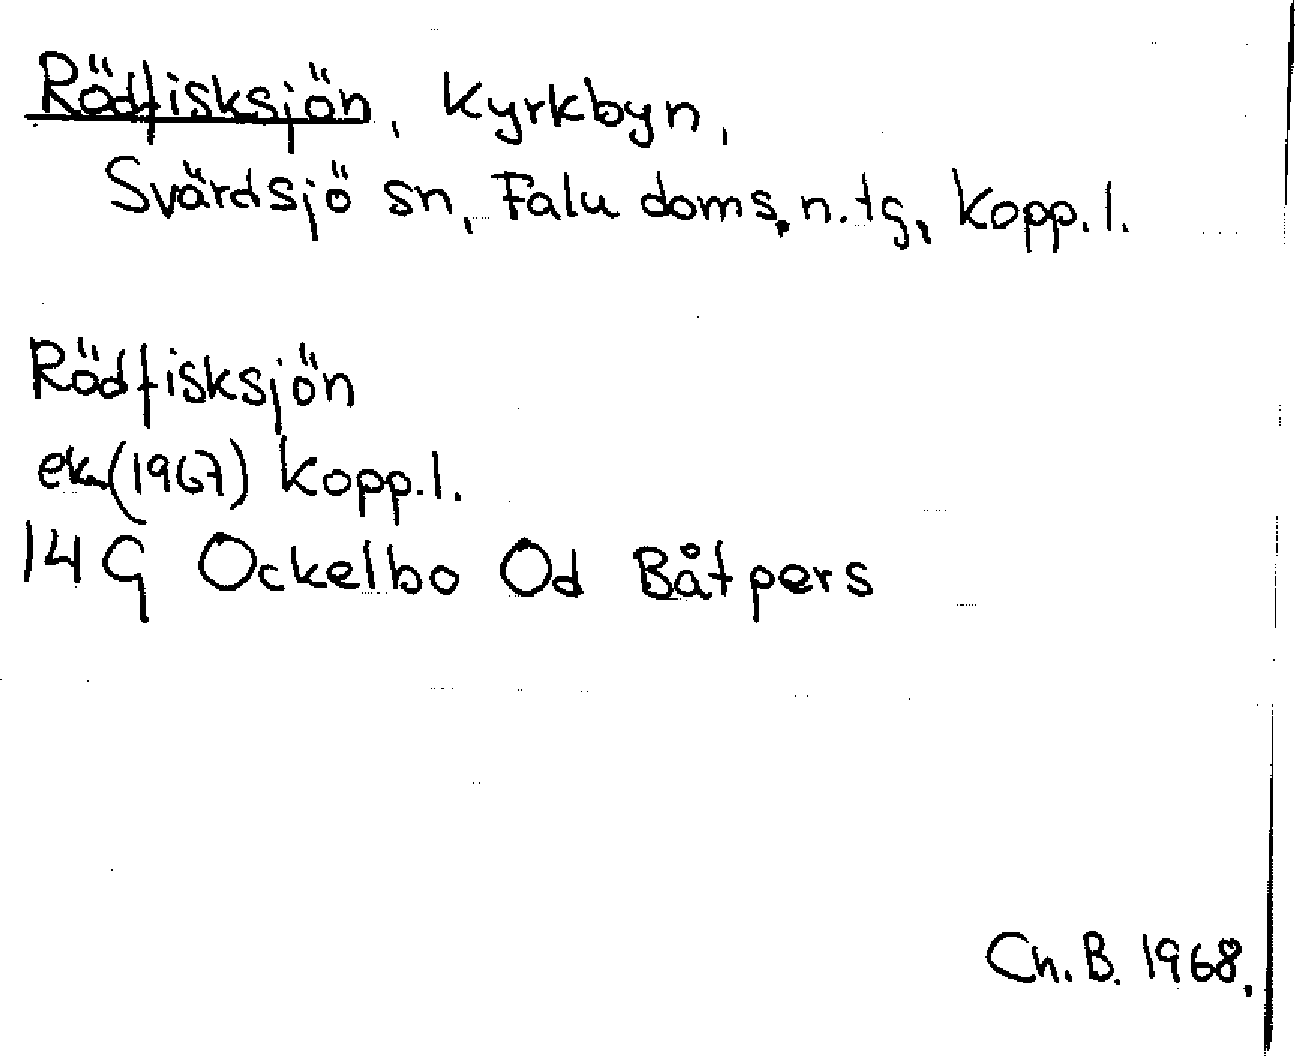 Rödfisksjön, Kyrkbyn,
Svärdsjö sn, Falu doms. n. tg, Kopp. l.
Rödfisksjön
ek (1967) Kopp. l.
14G Ockelbo Od Båtpers
Ch. B. 1968.